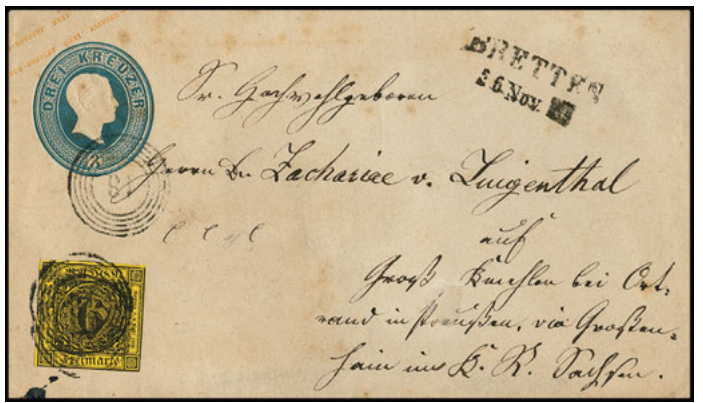 DREI KREUZER
3
BRETTEN
26 Nov.
Sr. Hochwohlgeboren
Herrn Dr. Zachariae v. Lingenthal
auf
Groß Kmehlen bei Ort-
rand in Preußen, via Großen-
hain im K. R. Sachsen.
Freimarke